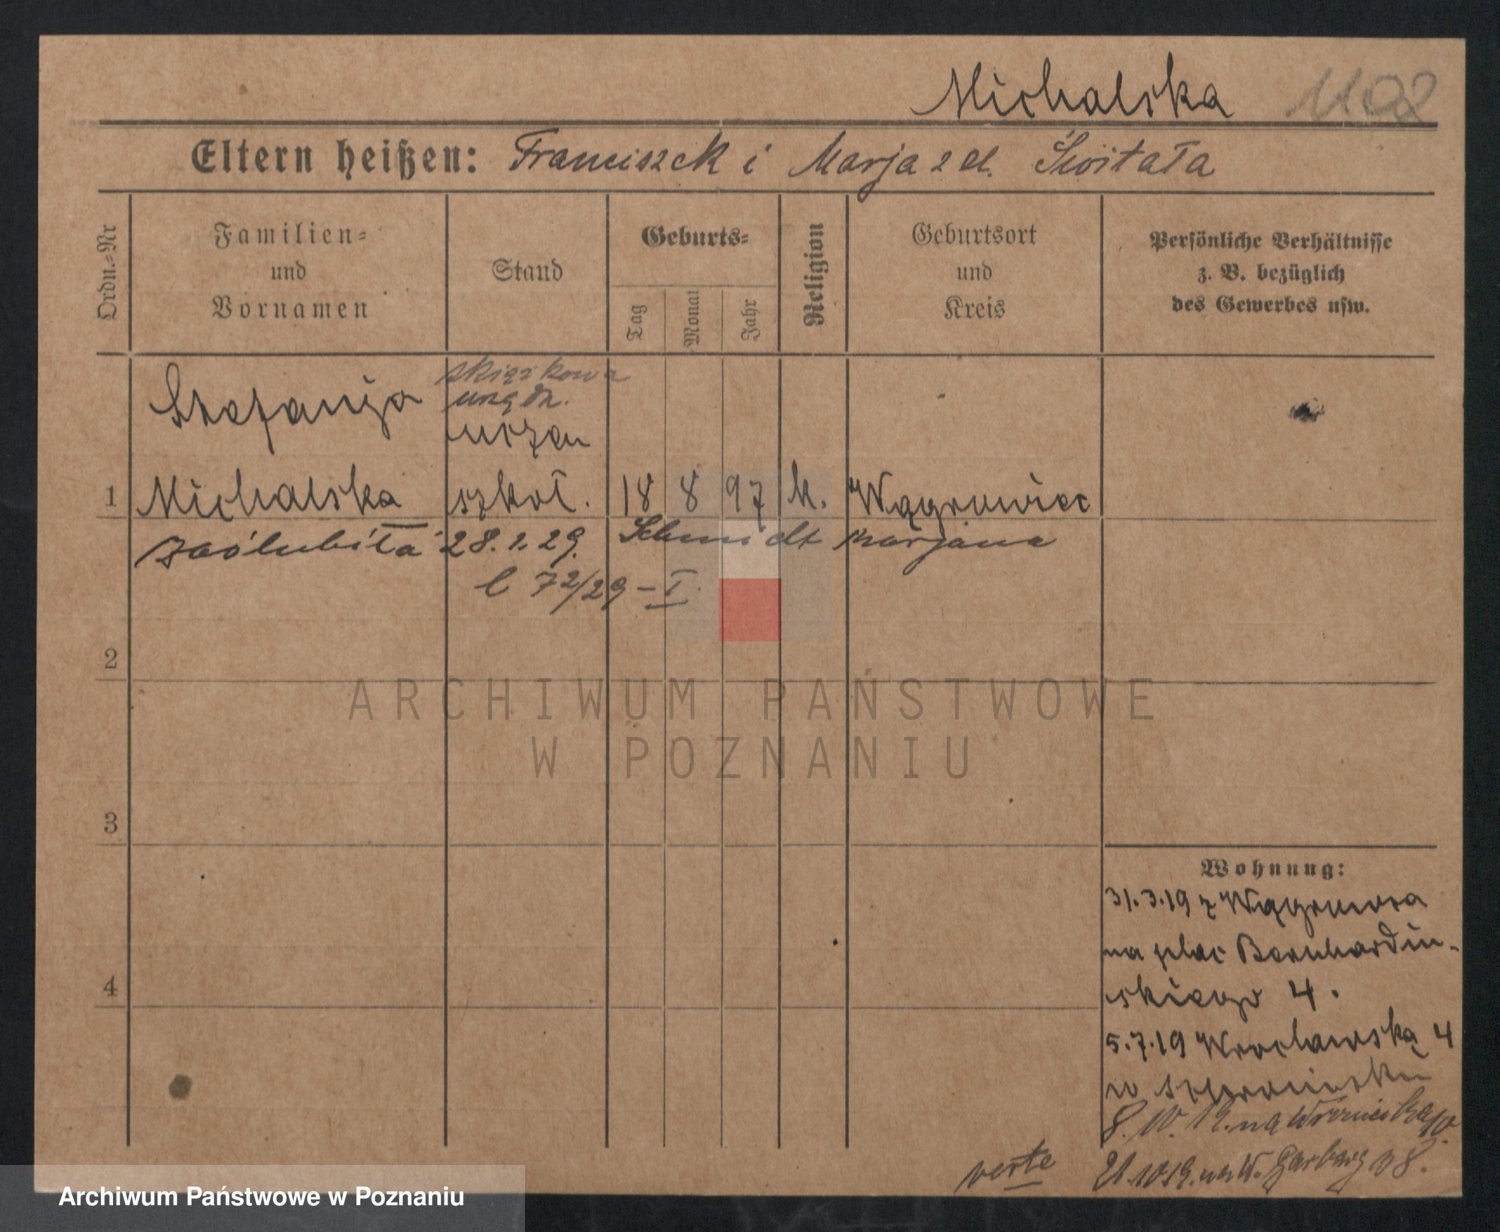 Michalska 1102
Eltern heißen: Franciszek i Marja z d. Świtała
Ordn.-Nr
Familien-
und
Vornamen
Stand
Geburts-
Tag
Monat
Jahr
Religion
Geburtsort
und
Kreis
Persönliche Verhältnisse
z. B. bezüglich
des Gewerbes usw.
Stefanja
urzędn.
1 Michalska szkol. 18 8 97 k. Wągrowiec
zaślubiła 28.1.29. Schmidt Marjana
C 72/29 - I.
2
ARCHIWUM PAŃSTWOWE
W POZNANIU
3
4
Wohnung:
31.3.19 z Wągrowca
na plac Bernhardyn-
skiego 4.
5.7.19 Wrocławską 4
w
8. na
verte
21.10.19. na W. Garbary 8.
Archiwum Państwowe w Poznaniu